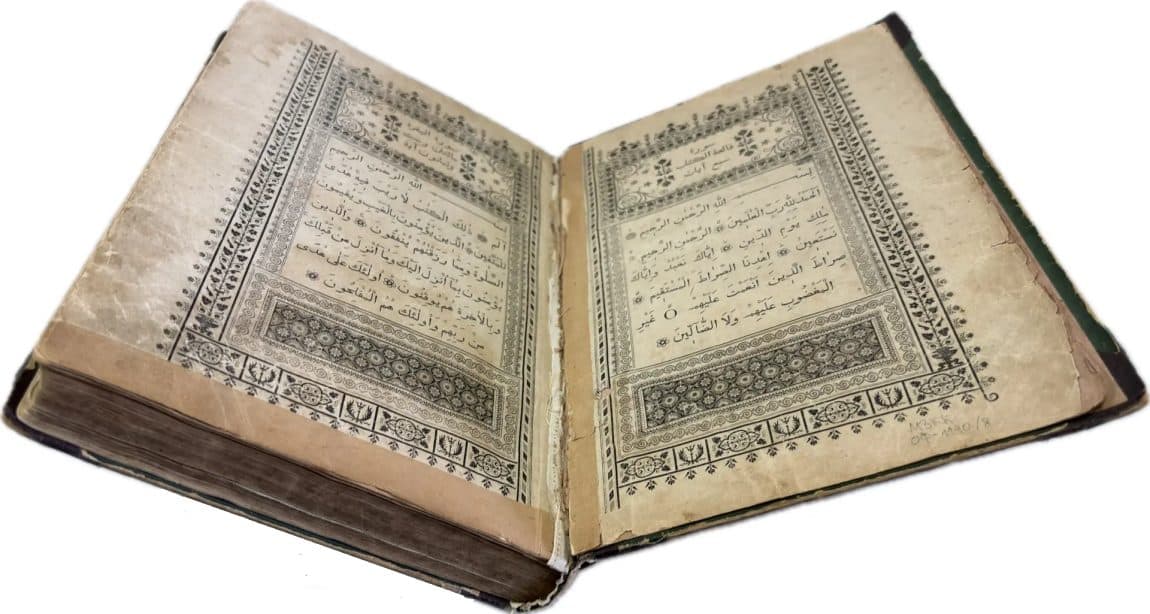 سورة
فاتحة الكتاب
سبع آيات
بِسْمِ اللهِ الرَّحْمٰنِ الرَّحِيمِ ۞
اَلْحَمْدُ لِلّٰهِ رَبِّ الْعٰلَمِينَ ۞ الرَّحْمٰنِ الرَّحِيمِ ۞
مٰلِكِ يَوْمِ الدِّينِ ۞ اِيَّاكَ نَعْبُدُ وَاِيَّاكَ
نَسْتَعِينُ ۞ اِهْدِنَا الصِّرَاطَ الْمُسْتَقِيمَ ۞
صِرَاطَ الَّذِينَ اَنْعَمْتَ عَلَيْهِمْ غَيْرِ
الْمَغْضُوبِ عَلَيْهِمْ وَلَا الضَّالِّينَ ۞
سورة البقرة
مائتان وست
وثمانون آية
بِسْمِ اللهِ الرَّحْمٰنِ الرَّحِيمِ
الٓمٓ ۞ ذٰلِكَ الْكِتٰبُ لَا رَيْبَ فِيهِ هُدًى
لِلْمُتَّقِينَ ۞ الَّذِينَ يُؤْمِنُونَ بِالْغَيْبِ وَيُقِيمُونَ
الصَّلٰوةَ وَمِمَّا رَزَقْنٰهُمْ يُنْفِقُونَ ۞ وَالَّذِينَ
يُؤْمِنُونَ بِمَا أُنْزِلَ إِلَيْكَ وَمَا أُنْزِلَ مِنْ قَبْلِكَ
وَبِالْآخِرَةِ هُمْ يُوقِنُونَ ۞ أُولٰئِكَ عَلٰى هُدًى
مِنْ رَبِّهِمْ وَأُولٰئِكَ هُمُ الْمُفْلِحُونَ ۞